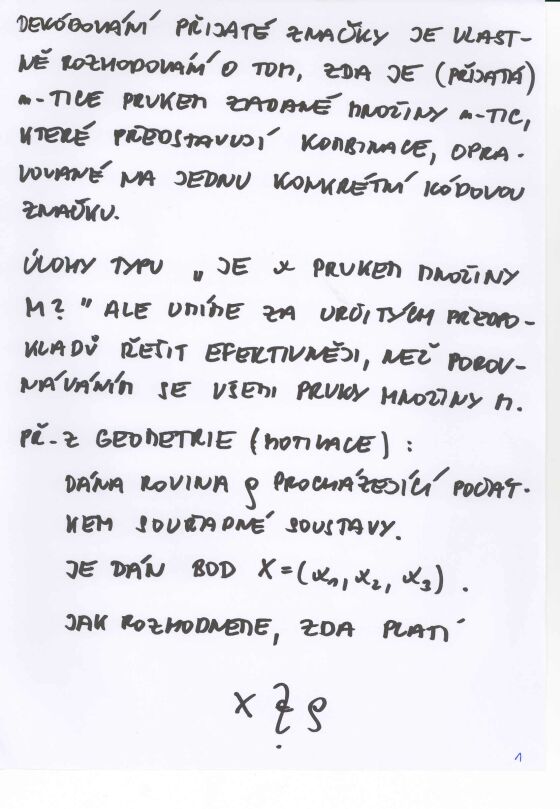 DEKÓDOVÁNÍ PŘIJATÉ ZNAČKY JE VLAST-
NĚ ROZHODOVÁNÍ O TOM, ZDA JE (PŘIJATÁ)
m-TICE PRVKEM ZADANÉ MNOŽINY m-TIC,
KTERÉ PŘEDSTAVUJÍ KOMBINACE, OPRA-
VOVANÉ NA JEDNU KONKRÉTNÍ KÓDOVOU
ZNAČKU.
ÚLOHY TYPU „JE x PRVKEM MNOŽINY
M?" ALE UMÍME ZA URČITÝCH PŘEDPO-
KLADŮ ŘEŠIT EFEKTIVNĚJI, NEŽ POROV-
NÁVÁNÍM SE VŠEMI PRVKY MNOŽINY M.
PŘ. Z GEOMETRIE (MOTIVACE):
DÁNA ROVINA ρ PROCHÁZEJÍCÍ POČÁT-
KEM SOUŘADNÉ SOUSTAVY.
JE DÁN BOD X=(x₁, x₂, x₃).
JAK ROZHODNEME, ZDA PLATÍ
X ρ
1